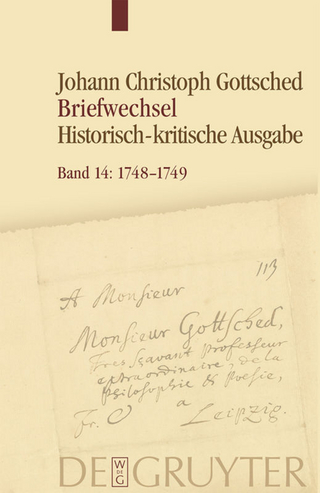 Johann Christoph Gottsched
Briefwechsel
Historisch-kritische Ausgabe
Band 14: 1748–1749
113
A Monsieur
Monsieur Gottsched,
Tres sçavant Professeur
extraordinaire, de la
Philosophie & Poesie,
Fr. a
Leipzig.
DE GRUYTER
W
DE
G